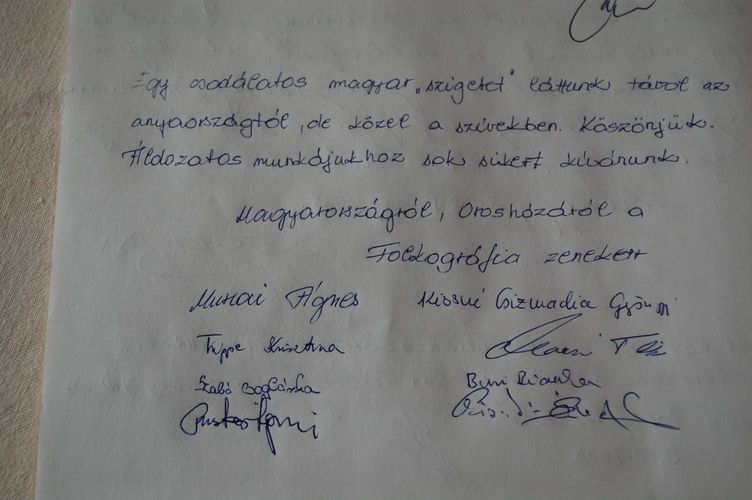 Egy csodálatos magyar „szigetet” láttunk távol az
anyaországtól, de közel a szívekben. Köszönjük.
Áldozatos munkájukhoz sok sikert kívánunk.
Magyarországról, Orosházáról a
Folkográfia zenekar
Ágnes Kissné Csizmadia Gyöngyi
Trippe Krisztina
Szabó Boglárka